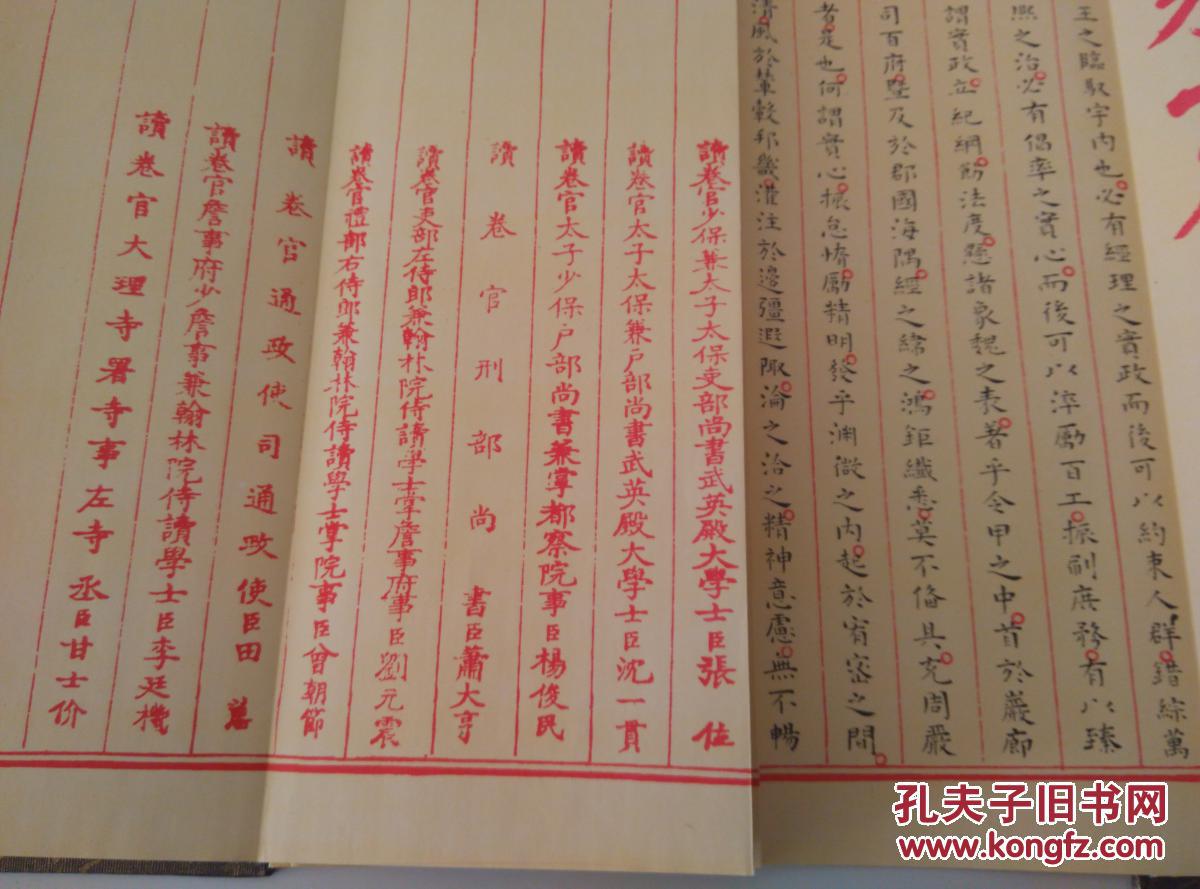 王之臨馭宇内也必有經理之實政而後可以約束人群錯綜萬
熙之治必有倡率之實心而後可以淬勵百工振刷庶務有以臻
謂實政立紀綱飭法度懸諸象魏之表著乎令甲之中首於巖廊
司百府暨及於郡國海隅經之緯之鴻鉅纖悉莫不備具充周嚴
者是也何謂實心振怠惰勵精明發乎淵微之内起於宥密之間
清風於輦轂邦畿灌注於邊疆遐陬淪之洽之精神意慮無不暢
讀卷官少保兼太子太保吏部尚書武英殿大學士臣張位
讀卷官太子太保兼户部尚書武英殿大學士臣沈一貫
讀卷官太子少保户部尚書兼掌都察院事臣楊俊民
讀卷官刑部尚書臣蕭大亨
讀卷官吏部左侍郎兼翰林院侍讀學士掌詹事府事臣劉元震
讀卷官禮部右侍郎兼翰林院侍讀學士掌院事臣曾朝節
讀卷官通政使司通政使臣田蕙
讀卷官詹事府少詹事兼翰林院侍讀學士臣李廷機
讀卷官大理寺署寺事左寺丞臣甘士价
孔夫子旧书网
www.kongfz.com